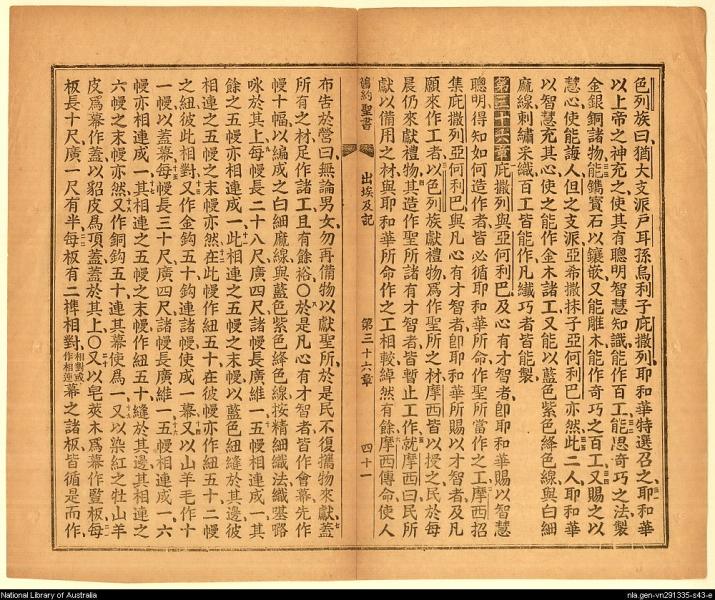 色列族曰猶大支派戶耳孫烏利子庇撒列耶和華特選召之耶和華
以上帝之神充之使其有聰明智慧知識能作百工能思奇巧之法製
金銀銅諸物能鐫寶石以鑲嵌又能雕木能作奇巧之百工又賜之以
慧心使能誨人但之支派亞希撒抹子亞何利巴亦然此二人耶和華
以智慧充其心使之能作金木諸工又能以藍色紫色絳色線與白細
麻線刺繡采織百工皆能作凡纖巧者皆能製
第三十六章庇撒列與亞何利巴及心有才智者卽耶和華賜以智慧
聰明得知如何造作者皆必循耶和華所命作聖所當作之工摩西招
集庇撒列亞何利巴與凡心有才智者卽耶和華所賜以才智者及凡
願來作工者以色列族獻禮物爲作聖所之材摩西皆以授之民於每
晨仍來獻禮物其造作聖所諸有才智者皆暫止工作就摩西曰民所
獻以備用之材與耶和華所命作之工相較綽然有餘摩西傳命使人
舊約聖書 出埃及記 第三十六章 四十一
布告於營曰無論男女勿再備物以獻聖所於是民不復攜物來獻蓋
所有之材足作諸工且有餘裕○於是凡心有才智者皆作會幕先作
幔十幅以編成之白細麻線與藍色紫色絳色線按精細織法織𠼻𡀔
咏於其上每幔長二十八尺廣四尺諸幔長廣維一五幔相連成一其
餘之五幔亦相連成一此相連之五幔之末幔以藍色紐縫於其邊彼
相連之五幔之末幔亦然在此幔作紐五十在彼幔亦作紐五十二幔
之紐彼此相對又作金鈎五十鈎連諸幔使成一幕又以山羊毛作十
一幔以爲幕每幔長三十尺廣四尺諸幔長廣維一五幔相連成一六
幔亦相連成一其相連之五幔之末幔作紐五十縫於其邊其相連之
六幔之末幔亦然又作銅鈎五十連其幕使爲一又以染紅之牡山羊
皮爲幕作蓋以貂皮爲頂蓋蓋於其上○又以皂莢木爲幕作豎板每
板長十尺廣一尺有半每板有二榫相對相對或作相連幕之諸板皆循是而作
National Library of Australia
nla.gen-vn291335-s43-e